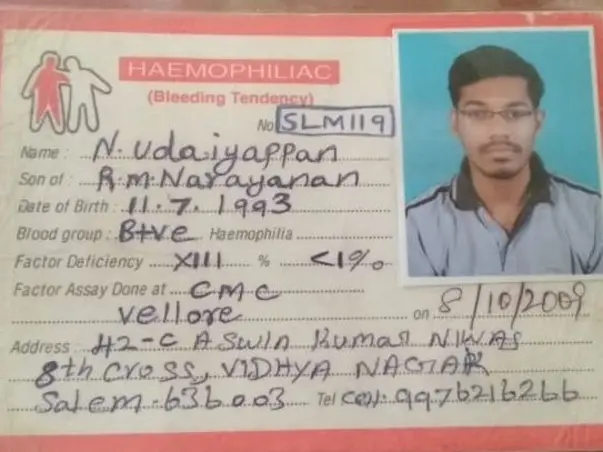 HAEMOPHILIAC
(Bleeding Tendency)
No SLM119
Name : N. Udaiyappan
Son of : R.M. Narayanan
Date of Birth : 11.7.1993
Blood group : B+ve Haemophilia
Factor Deficiency XIII % <1%
Factor Assay Done at CMC
Vellore on 8/10/2009
Address : 42-C Aswin Kumar NIWAS
8th Cross, VIDHYA NAGAR
Salem - 636003 Tel Cell. 9976216266